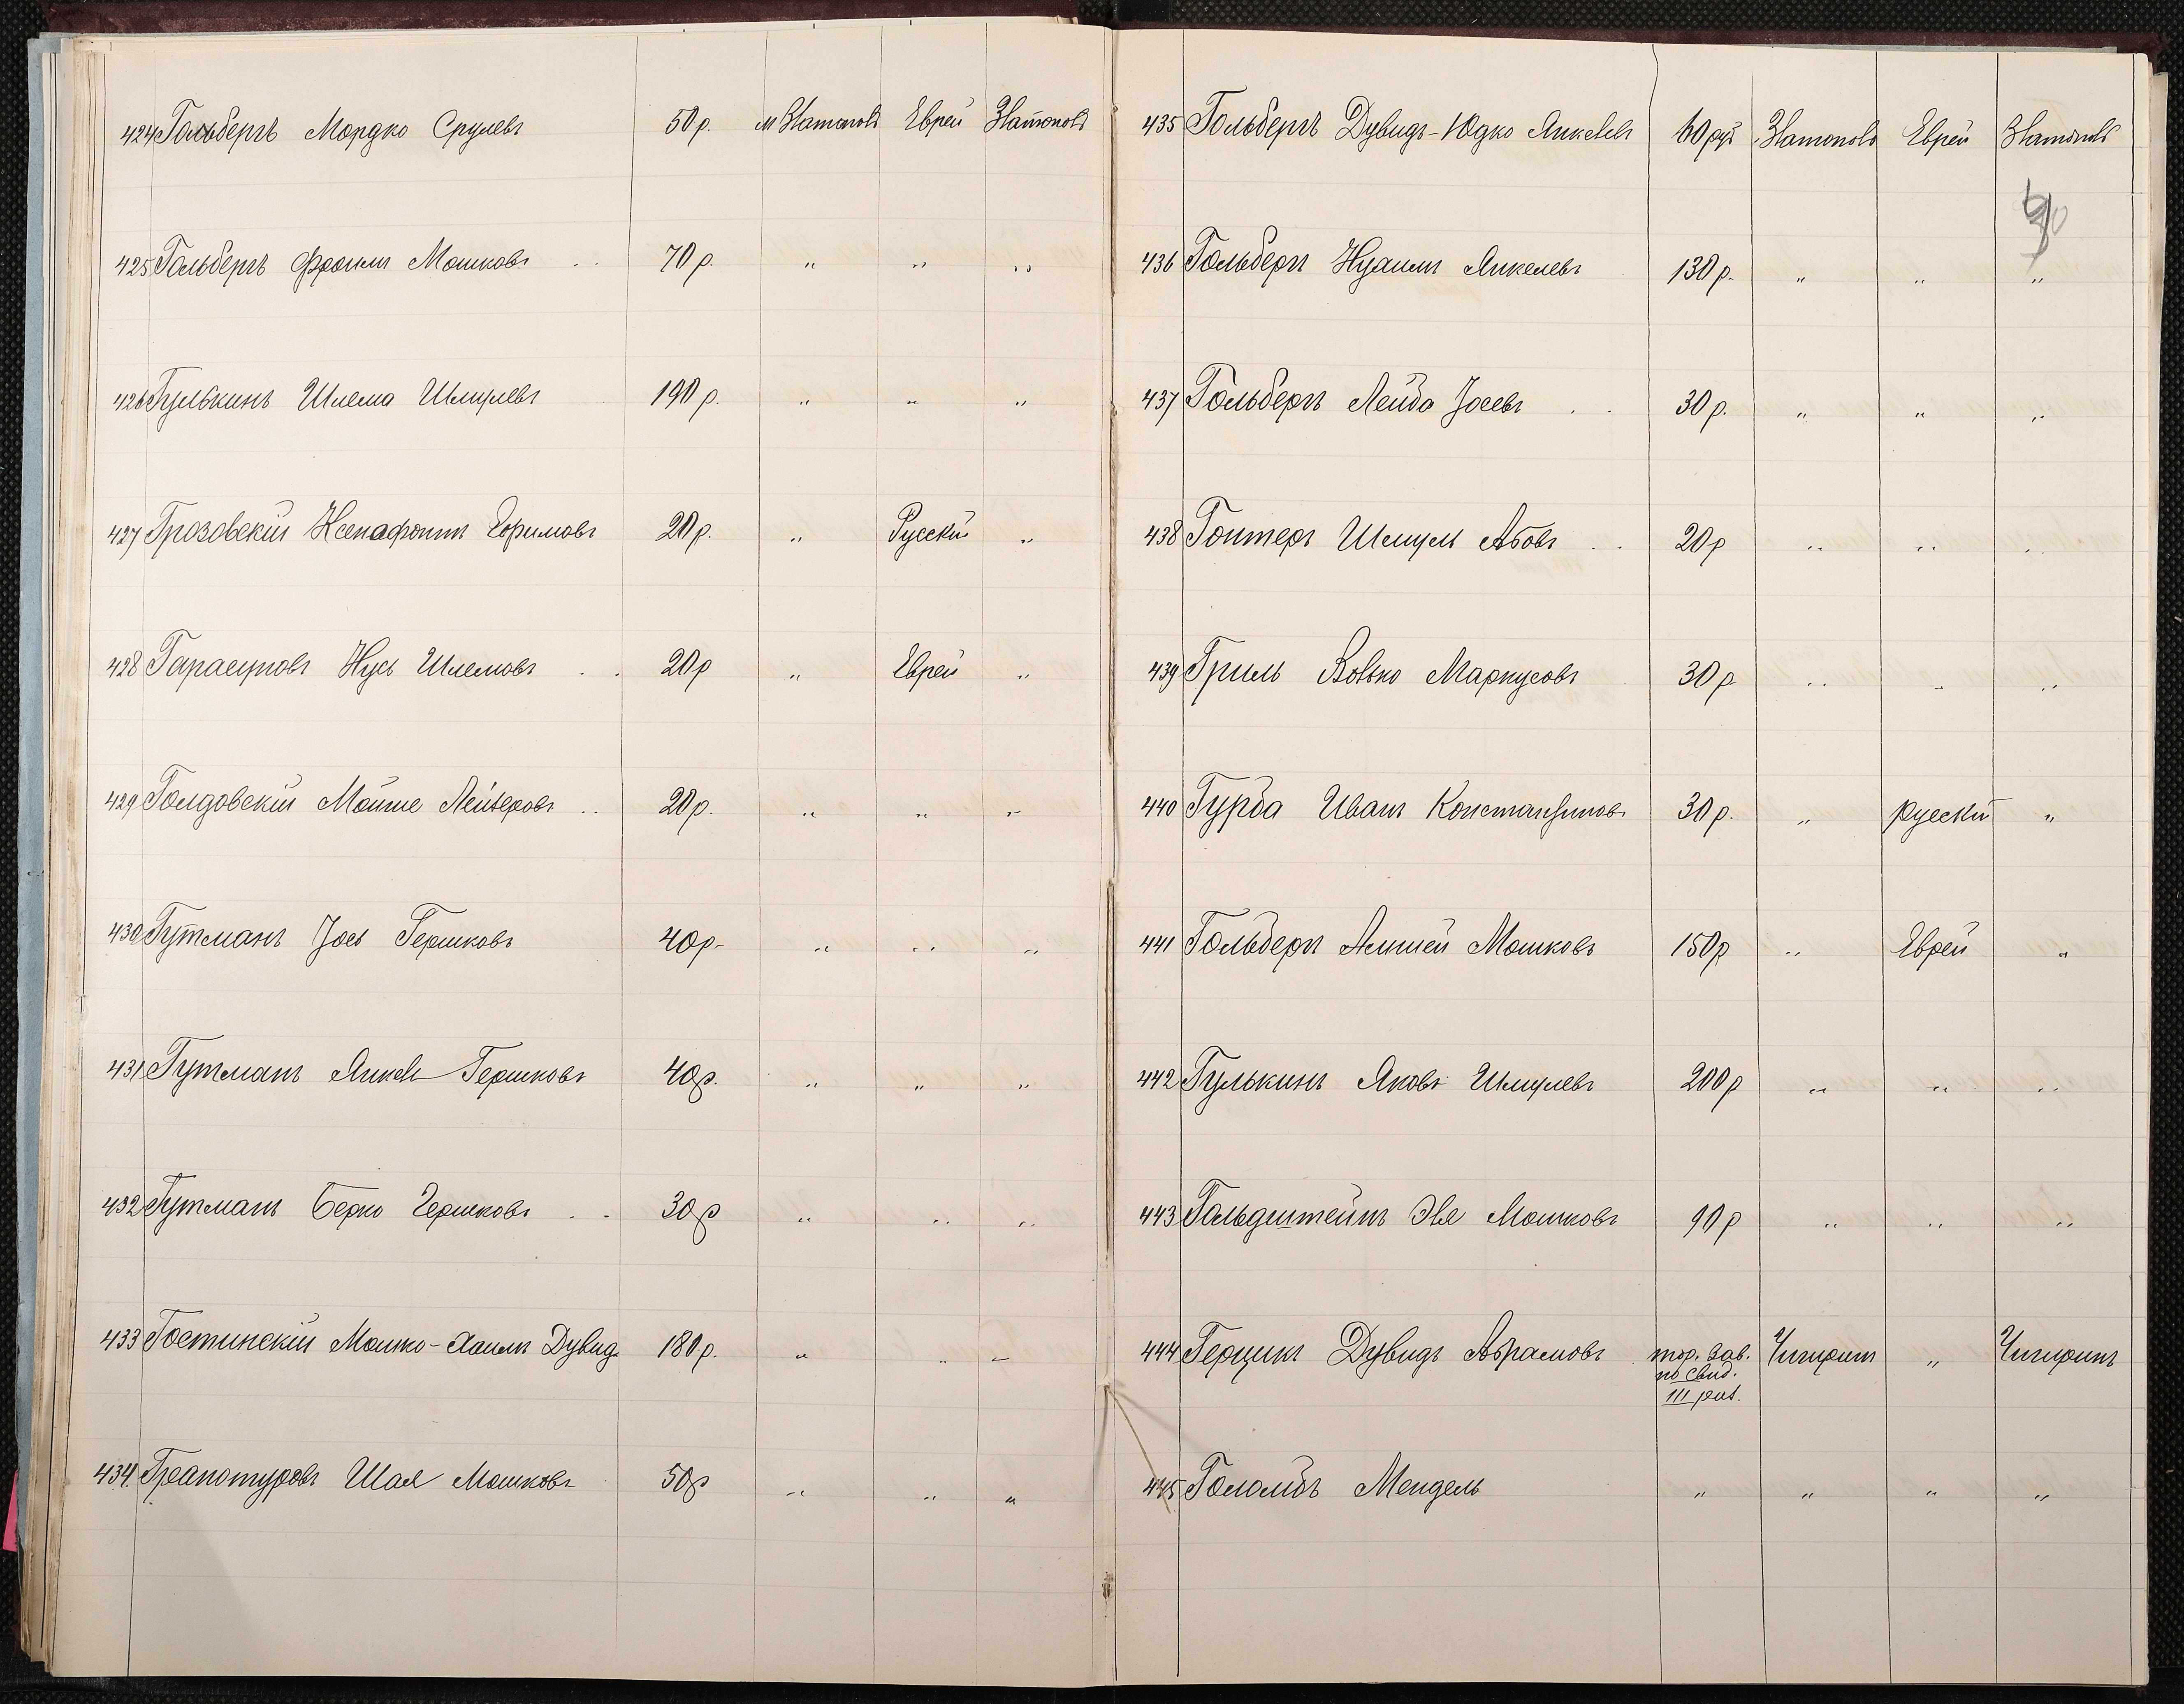 424 Гольбергъ Мордко Срулевъ 50 р. м Златополь Еврей Златополь
425 Гольбергъ Фроимъ Мошковъ 70 р. " " "
426 Гулькинъ Шлема Шмулевъ 190 р. " " "
427 Грозовскій Ксенафонтъ Ефимовъ 20 р. " Русскій "
428 Нусь Шлемовъ 20 р " Еврей "
429 Голдовскій Мойше Лейзеровъ 20 р. " " "
430 Гутманъ Іось Гершковъ 40 р. " " "
431 Гутманъ Янкель Гершковъ 40 р. " " "
432 Гутманъ Берко Гершковъ 30 р " " "
433 Гостинскій Мошко-Хаимъ Дувид. 180 р. " " "
434. Шая Мошковъ 50 р " " "
435 Гольбергъ Дувидъ-Юдко Янкелевъ 60 руб Златополь Еврей Златополь
436 Гольбергъ Нухимъ Янкелевъ 130 р. " " "
437 Гольбергъ Лейба Іосевъ 30 р. " " "
438 Гонтеръ Шмуль Абовъ 20 р " " "
439 Гриль Волько Маркусовъ 30 р " " "
440 Гурба Иванъ Константиновъ 30 р. " Русскій "
441 Гольбергъ Мошковъ 150 р " Еврей "
442 Гулькинъ Яковъ Шмулевъ 200 р " " "
443 Гольдштейнъ Эля Мошковъ 90 р " " "
444 Герцикъ Дувидъ Абрамовъ тор. зав. Чигиринъ " Чигиринъ
по свид.
III раз.
445 Голомбъ Мендель " " " "